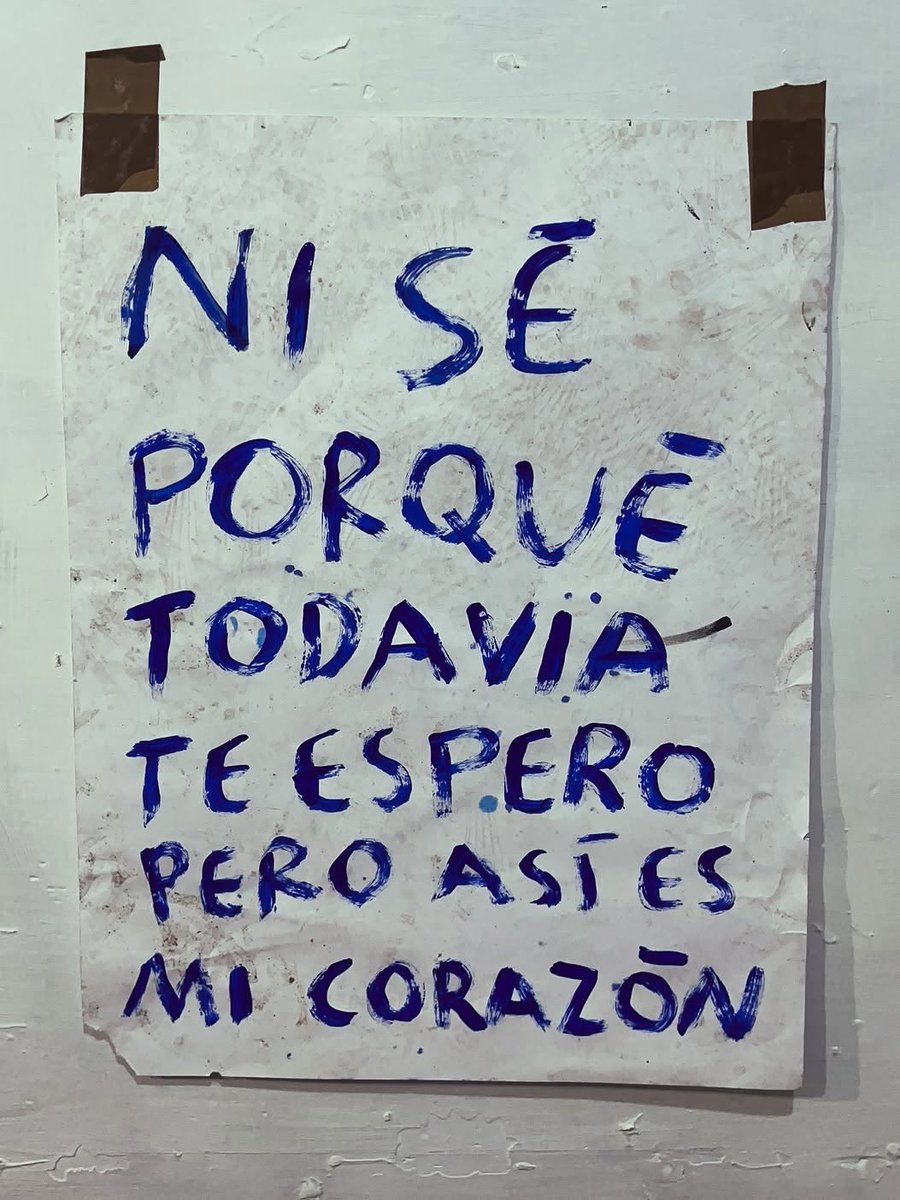 NI SÉ
PORQUÉ
TODAVÏA
TE ESPERO
PERO ASÍ ES
MI CORAZÓN